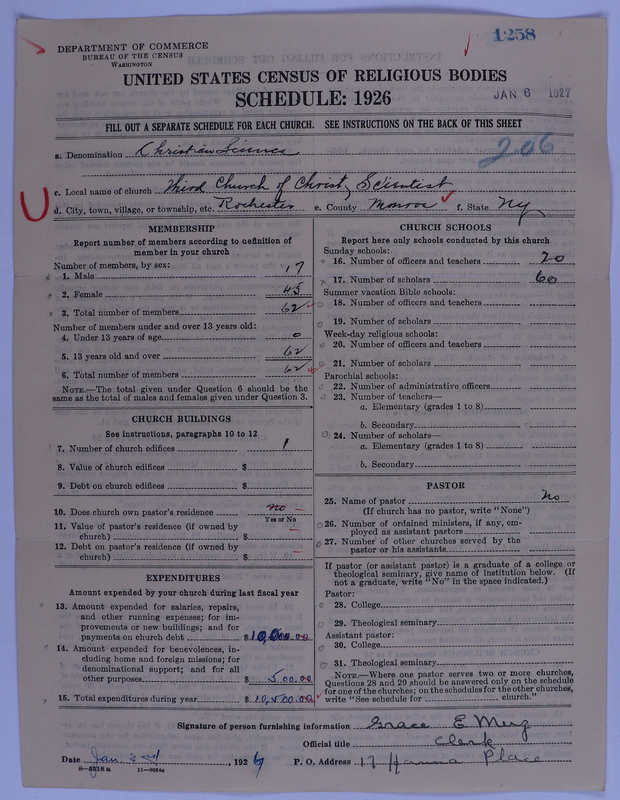 1258
DEPARTMENT OF COMMERCE
BUREAU OF THE CENSUS
WASHINGTON
UNITED STATES CENSUS OF RELIGIOUS BODIES
SCHEDULE: 1926
JAN 6 1927
FILL OUT A SEPARATE SCHEDULE FOR EACH CHURCH. SEE INSTRUCTIONS ON THE BACK OF THIS SHEET
206
a. Denomination Christian Science
c. Local name of church Third Church of Christ, Scientist
d. City, town, village, or township, etc. Rochester e. County Monroe f. State Ny
MEMBERSHIP
Report number of members according to definition of
member in your church
Number of members, by sex:
1. Male 17
2. Female 45
3. Total number of members 62
Number of members under and over 13 years old:
4. Under 13 years of age 0
5. 13 years old and over 62
6. Total number of members 62
NOTE.—The total given under Question 6 should be the
same as the total of males and females given under Question 3.
CHURCH BUILDINGS
See instructions, paragraphs 10 to 12
7. Number of church edifices 1
8. Value of church edifices $
9. Debt on church edifices $
10. Does church own pastor's residence no —
Yes or No
11. Value of pastor's residence (if owned by
church) $ —
12. Debt on pastor's residence (if owned by
church) $ —
EXPENDITURES
Amount expended by your church during last fiscal year
13. Amount expended for salaries, repairs,
and other running expenses; for im-
provements or new buildings; and for
payments on church debt $
14. Amount expended for benevolences, in-
cluding home and foreign missions; for
denominational support; and for all
other purposes $ 500.00
15. Total expenditures during year $ 10,500.00
CHURCH SCHOOLS
Report here only schools conducted by this church
Sunday schools:
16. Number of officers and teachers 20
17. Number of scholars 60
Summer vacation Bible schools:
18. Number of officers and teachers
19. Number of scholars
Week-day religious schools:
20. Number of officers and teachers
21. Number of scholars
Parochial schools:
22. Number of administrative officers
23. Number of teachers—
a. Elementary (grades 1 to 8)
b. Secondary
24. Number of scholars—
a. Elementary (grades 1 to 8)
b. Secondary
PASTOR
25. Name of pastor no
(If church has no pastor, write "None")
26. Number of ordained ministers, if any, em-
ployed as assistant pastors
27. Number of other churches served by the
pastor or his assistants
If pastor (or assistant pastor) is a graduate of a college or
theological seminary, give name of institution below. (If
not a graduate, write "No" in the space indicated.)
Pastor:
28. College
29. Theological seminary
Assistant pastor:
30. College
31. Theological seminary
NOTE.—Where one pastor serves two or more churches,
Questions 28 and 29 should be answered only on the schedule
for one of the churches; on the schedules for the other churches,
write "See schedule for church."
Signature of person furnishing information Grace E Merz
Official title Clerk
Date Jan 3rd, 1927 P. O. Address 17 Hanna Place
8—5518a 11—9864